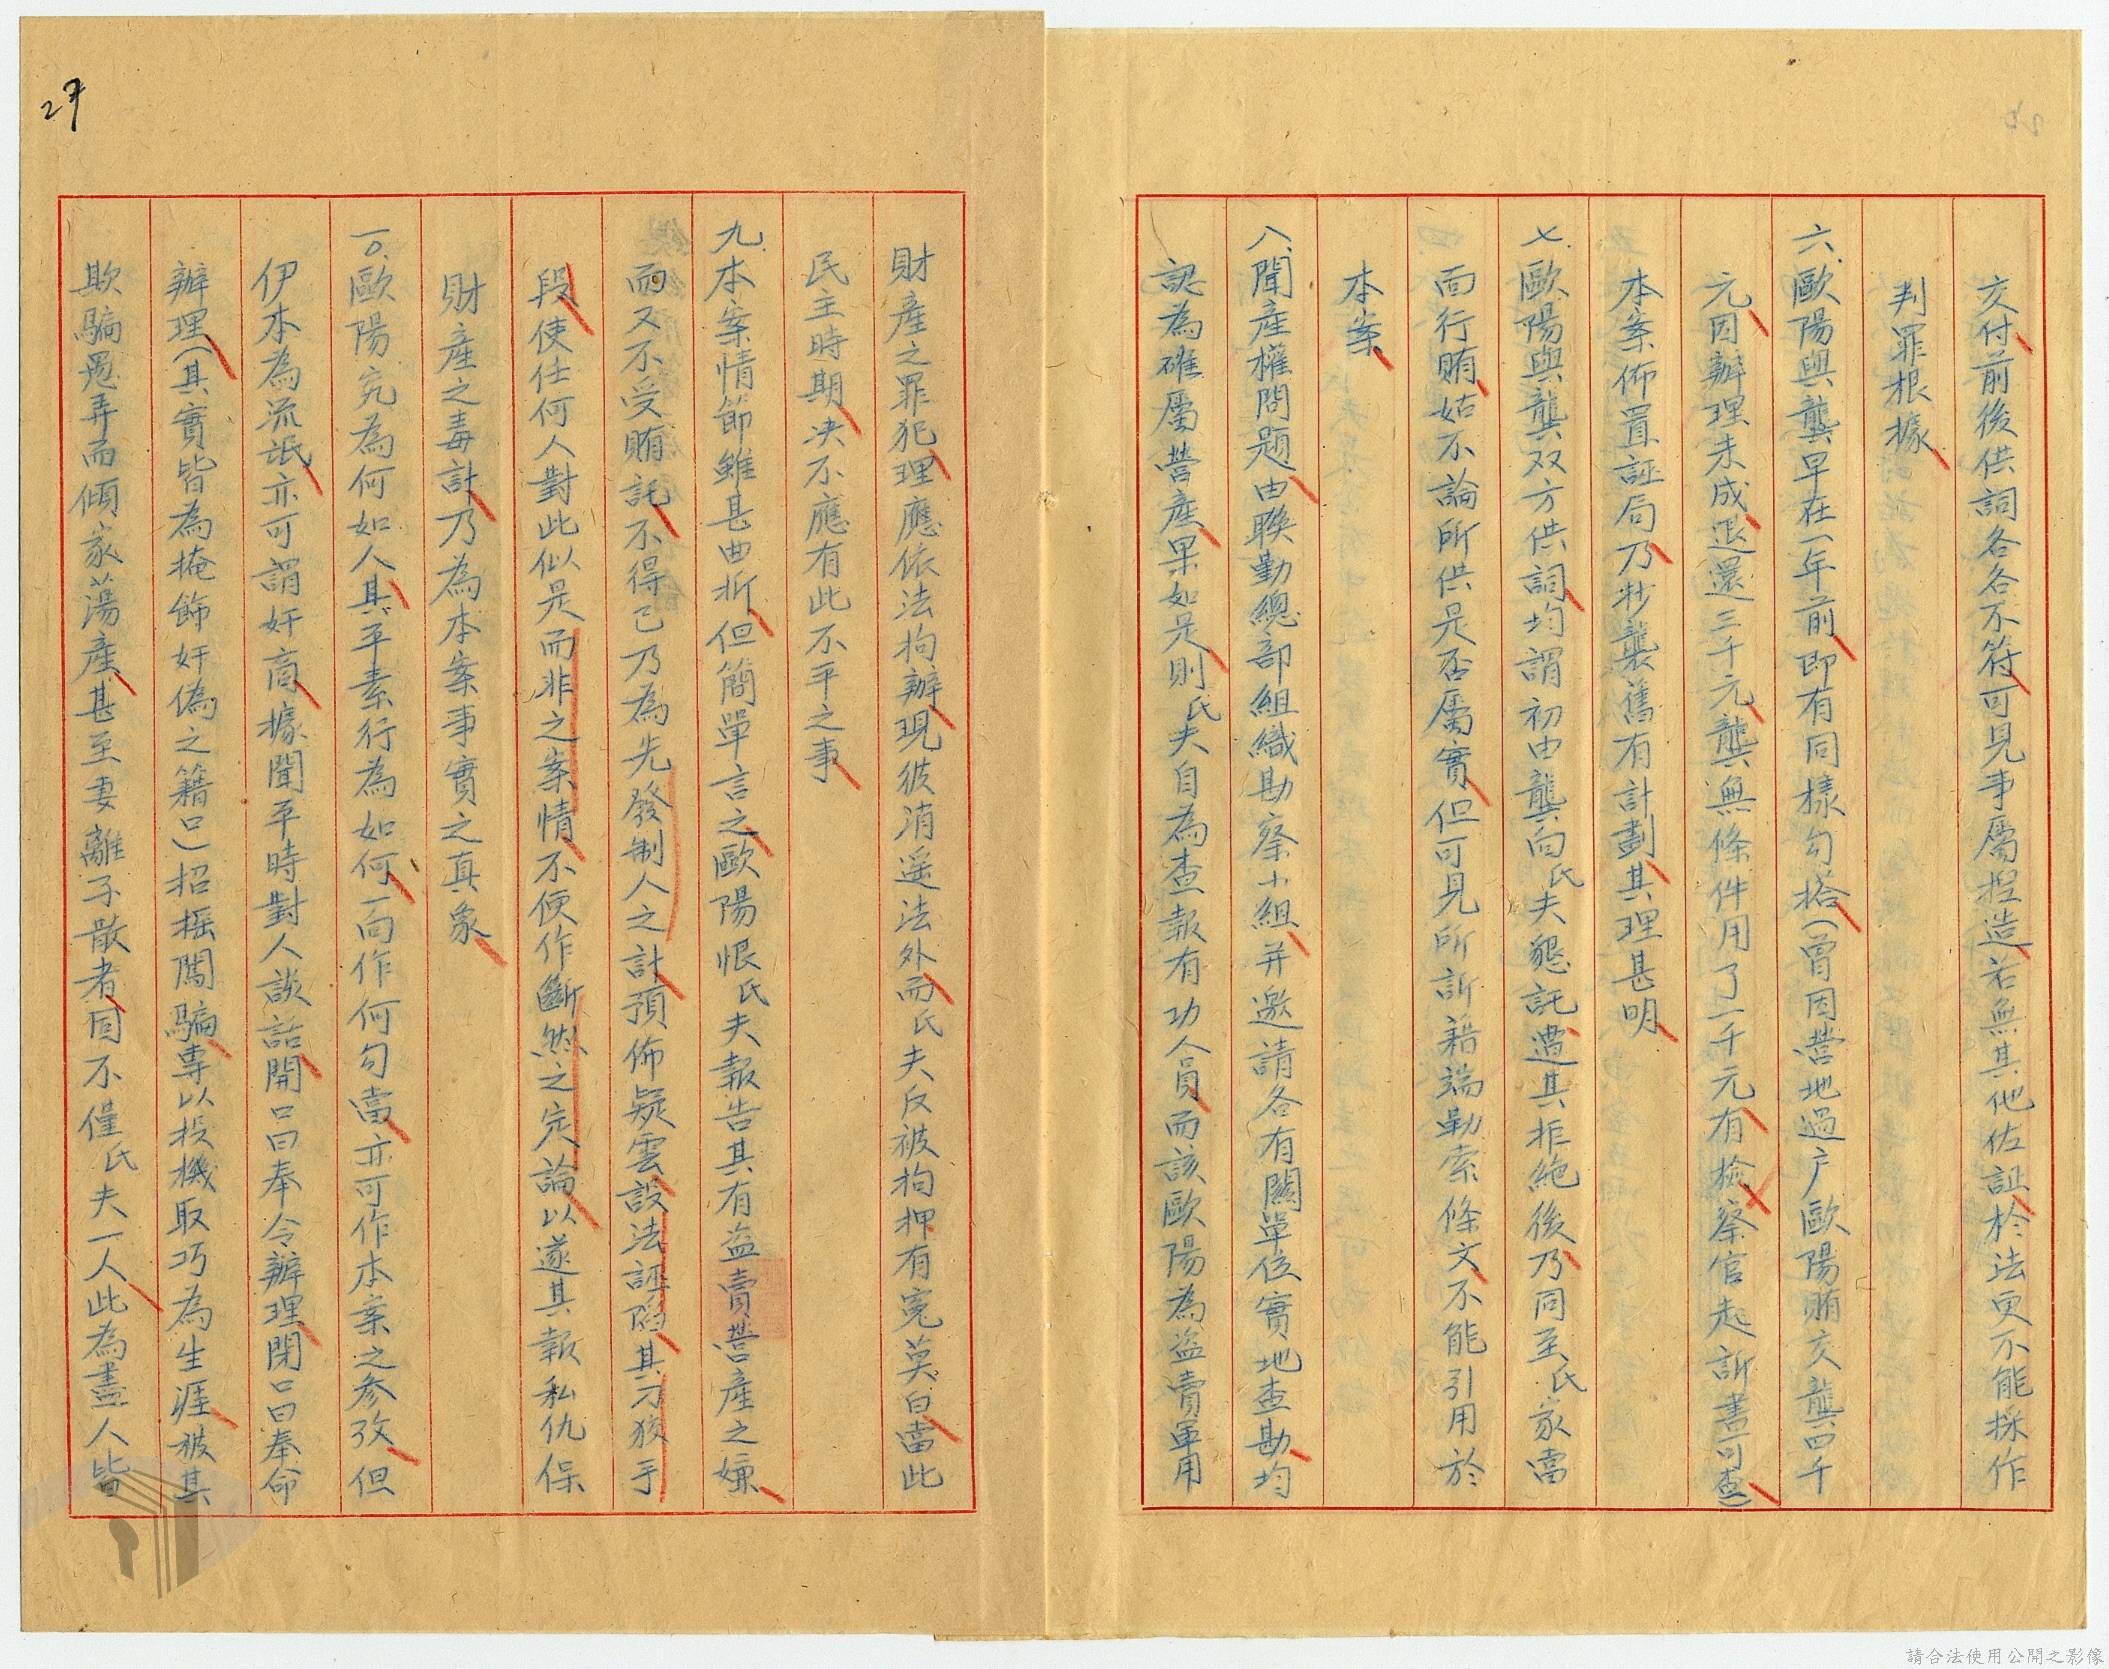 交付前後供詞各各不符可見事屬揑造若無其他佐証於法更不能採作
判罪根據
六.歐陽與龔早在一年前即有同樣勾搭(曾因營地過户歐陽賄交龔四千
元因辦理未成退還三千元龔無條件用了一千元有檢察官起訴書可查)
本案佈置誣局乃抄襲舊有計劃其理甚明
七.歐陽與龔双方供詞均謂初由龔向氏夫懇託遭其拒絶後乃同至氏家當
面行賄姑不論所供是否屬實但可見所訴藉端勒索條文不能引用於
本案
八.聞産權問題由聯勤總部組織勘察小組并邀請各有關單位實地查勘均
認為確屬營産果如是則氏夫自為查報有功人員而該歐陽為盗賣軍用
財産之罪犯理應依法拘辦現彼消遥法外而氏夫反被拘押有寃莫白當此
民主時期决不應有此不平之事
九.本案情節雖甚曲折但簡單言之歐陽恨氏夫報告其有盗賣營産之嫌
而又不受賄託不得已乃為先發制人之計預佈疑雲設法誣陷其刁狡手
段使任何人對此似是而非之案情不便作斷然之定論以遂其報私仇保
財産之毒計乃為本案事實之真象
一〇.歐陽究為何如人其平素行為如何一向作何勾當亦可作本案之参攷但
伊本為流氓亦可謂奸商據聞平時對人談話開口曰奉令辦理閉口曰奉命
辦理(其實皆為掩飾奸偽之藉口)招搖闖騙專以投機取巧為生涯被其
欺騙愚弄而傾家蕩産甚至妻離子散者固不僅氏夫一人此為盡人皆
27
請合法使用公開之影像